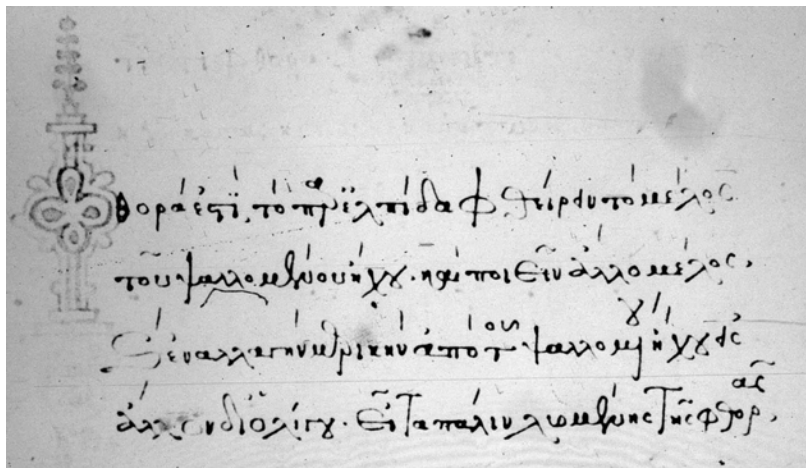 φθορά ἐστι, τὸ παρ' ἐλπίδα φθείρειν τὸ μέλος
τοῦ ψαλλομένου ἤχου. καὶ ποιεῖν ἄλλο μέλος,
καὶ ἐναλλαγὴν μερικὴν ἀπὸ τοῦ ψαλλομένου ἤχου εἰς
ἄλλον δι' ὀλίγου. Εἶτα πάλιν λυομένης τῆς φθορᾶς,